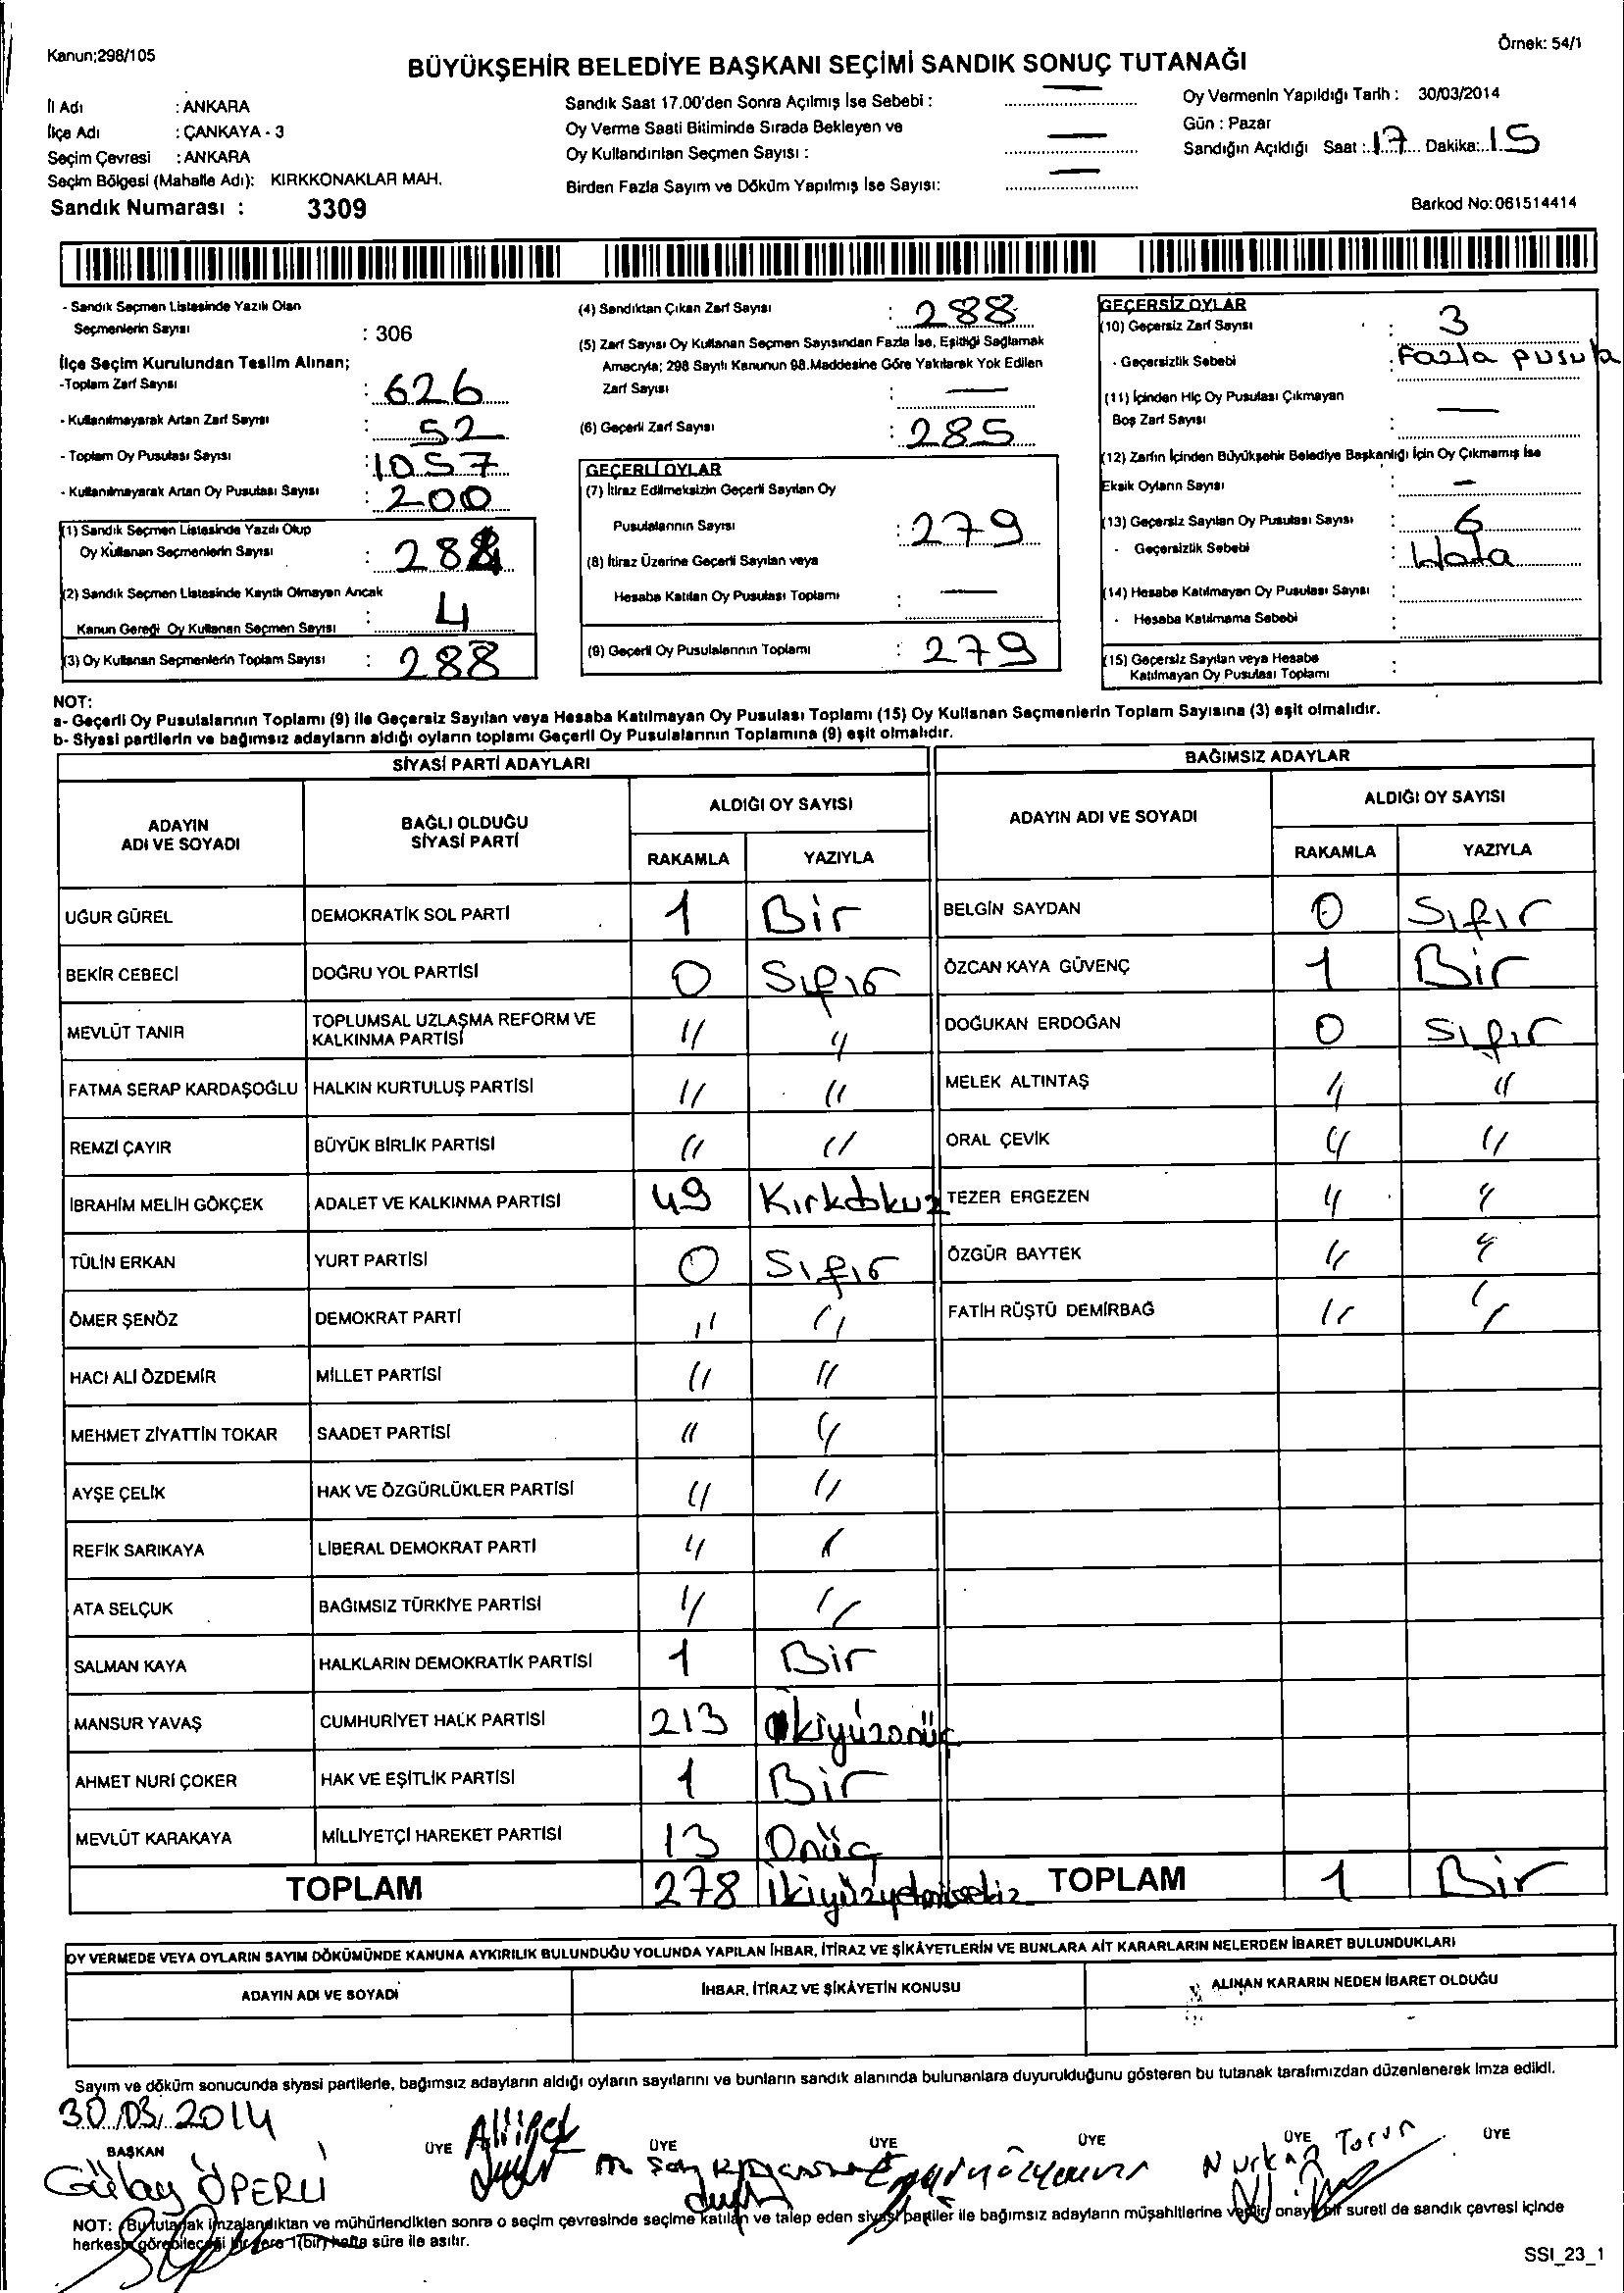 Kanun;298/105
Örnek: 54/1
BÜYÜKŞEHİR BELEDİYE BAŞKANI SEÇİMİ SANDIK SONUÇ TUTANAĞI
İl Adı : ANKARA
İlçe Adı : ÇANKAYA - 3
Seçim Çevresi : ANKARA
Seçim Bölgesi (Mahalle Adı): KIRKKONAKLAR MAH.
Sandık Numarası : 3309
Sandık Saat 17.00'den Sonra Açılmış İse Sebebi : —
Oy Verme Saati Bitiminde Sırada Bekleyen ve
Oy Kullandırılan Seçmen Sayısı : —
Birden Fazla Sayım ve Döküm Yapılmış İse Sayısı: —
Oy Vermenin Yapıldığı Tarih : 30/03/2014
Gün : Pazar
Sandığın Açıldığı Saat : 17 Dakika: 15
Barkod No:061514414
- Sandık Seçmen Listesinde Yazılı Olan
Seçmenlerin Sayısı : 306
İlçe Seçim Kurulundan Teslim Alınan;
-Toplam Zarf Sayısı : 626
- Kullanılmayarak Artan Zarf Sayısı : 52
- Toplam Oy Pusulası Sayısı : 1057
- Kullanılmayarak Artan Oy Pusulası Sayısı : 200
(1) Sandık Seçmen Listesinde Yazılı Olup
Oy Kullanan Seçmenlerin Sayısı : 284
(2) Sandık Seçmen Listesinde Kayıtlı Olmayan Ancak
Kanun Gereği Oy Kullanan Seçmen Sayısı : 4
(3) Oy Kullanan Seçmenlerin Toplam Sayısı : 288
(4) Sandıktan Çıkan Zarf Sayısı : 288
(5) Zarf Sayısı Oy Kullanan Seçmen Sayısından Fazla İse, Eşitliği Sağlamak
Amacıyla; 298 Sayılı Kanunun 98.Maddesine Göre Yakılarak Yok Edilen
Zarf Sayısı : —
(6) Geçerli Zarf Sayısı : 285
GEÇERLİ OYLAR
(7) İtiraz Edilmeksizin Geçerli Sayılan Oy
Pusulalarının Sayısı : 279
(8) İtiraz Üzerine Geçerli Sayılan veya
Hesaba Katılan Oy Pusulası Toplamı : —
(9) Geçerli Oy Pusulalarının Toplamı : 279
GEÇERSİZ OYLAR
(10) Geçersiz Zarf Sayısı : 3
- Geçersizlik Sebebi : Fazla pusula
(11) İçinden Hiç Oy Pusulası Çıkmayan
Boş Zarf Sayısı : —
(12) Zarfın İçinden Büyükşehir Belediye Başkanlığı İçin Oy Çıkmamış İse
Eksik Oyların Sayısı : –
(13) Geçersiz Sayılan Oy Pusulası Sayısı : 6
- Geçersizlik Sebebi : Hata
(14) Hesaba Katılmayan Oy Pusulası Sayısı :
- Hesaba Katılmama Sebebi :
(15) Geçersiz Sayılan veya Hesaba
Katılmayan Oy Pusulası Toplamı :
NOT:
a- Geçerli Oy Pusulalarının Toplamı (9) ile Geçersiz Sayılan veya Hesaba Katılmayan Oy Pusulası Toplamı (15) Oy Kullanan Seçmenlerin Toplam Sayısına (3) eşit olmalıdır.
b- Siyasi partilerin ve bağımsız adayların aldığı oyların toplamı Geçerli Oy Pusulalarının Toplamına (9) eşit olmalıdır.
SİYASİ PARTİ ADAYLARI
ADAYIN ADI VE SOYADI
BAĞLI OLDUĞU SİYASİ PARTİ
ALDIĞI OY SAYISI
RAKAMLA YAZIYLA
UĞUR GÜREL DEMOKRATİK SOL PARTİ 1 Bir
BEKİR CEBECİ DOĞRU YOL PARTİSİ 0 Sıfır
MEVLÜT TANIR TOPLUMSAL UZLAŞMA REFORM VE KALKINMA PARTİSİ " "
FATMA SERAP KARDAŞOĞLU HALKIN KURTULUŞ PARTİSİ " "
REMZİ ÇAYIR BÜYÜK BİRLİK PARTİSİ " "
İBRAHİM MELİH GÖKÇEK ADALET VE KALKINMA PARTİSİ 49 Kırkdokuz
TÜLİN ERKAN YURT PARTİSİ 0 Sıfır
ÖMER ŞENÖZ DEMOKRAT PARTİ " "
HACI ALİ ÖZDEMİR MİLLET PARTİSİ " "
MEHMET ZİYATTİN TOKAR SAADET PARTİSİ " "
AYŞE ÇELİK HAK VE ÖZGÜRLÜKLER PARTİSİ " "
REFİK SARIKAYA LİBERAL DEMOKRAT PARTİ " "
ATA SELÇUK BAĞIMSIZ TÜRKİYE PARTİSİ " "
SALMAN KAYA HALKLARIN DEMOKRATİK PARTİSİ 1 Bir
MANSUR YAVAŞ CUMHURİYET HALK PARTİSİ 213 ikiyüzonüç
AHMET NURİ ÇOKER HAK VE EŞİTLİK PARTİSİ 1 Bir
MEVLÜT KARAKAYA MİLLİYETÇİ HAREKET PARTİSİ 13 Onüç
TOPLAM 278 ikiyüzyetmişsekiz
BAĞIMSIZ ADAYLAR
ADAYIN ADI VE SOYADI
ALDIĞI OY SAYISI
RAKAMLA YAZIYLA
BELGİN SAYDAN 0 Sıfır
ÖZCAN KAYA GÜVENÇ 1 Bir
DOĞUKAN ERDOĞAN 0 Sıfır
MELEK ALTINTAŞ " "
ORAL ÇEVİK " "
TEZER ERGEZEN " "
ÖZGÜR BAYTEK " "
FATİH RÜŞTÜ DEMİRBAĞ " "
TOPLAM 1 Bir
OY VERMEDE VEYA OYLARIN SAYIM DÖKÜMÜNDE KANUNA AYKIRILIK BULUNDUĞU YOLUNDA YAPILAN İHBAR, İTİRAZ VE ŞİKÂYETLERİN VE BUNLARA AİT KARARLARIN NELERDEN İBARET BULUNDUKLARI
ADAYIN ADI VE SOYADI
İHBAR, İTİRAZ VE ŞİKÂYETİN KONUSU
ALINAN KARARIN NEDEN İBARET OLDUĞU
Sayım ve döküm sonucunda siyasi partilerle, bağımsız adayların aldığı oyların sayılarını ve bunların sandık alanında bulunanlara duyurulduğunu gösteren bu tutanak tarafımızdan düzenlenerek imza edildi.
30/03/2014
BAŞKAN ÜYE ÜYE ÜYE ÜYE ÜYE ÜYE
Gülay ÖPERLİ
Nurkan Torun
NOT: Bu tutanak imzalandıktan ve mühürlendikten sonra o seçim çevresinde seçime katılan ve talep eden siyasi partiler ile bağımsız adayların müşahitlerine verilir, onaylı bir sureti de sandık çevresi içinde
herkesin görebileceği bir yere 1(bir) hafta süre ile asılır.
SSI_23_1